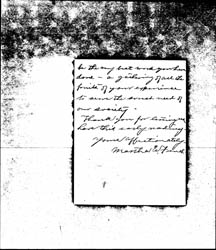 be the very best work you have
done — a gathering of all the
fruits of your experience
to serve the sorest need of
our society.
Thank you for letting me
have this early reading.
Yours affectionately,
Martha